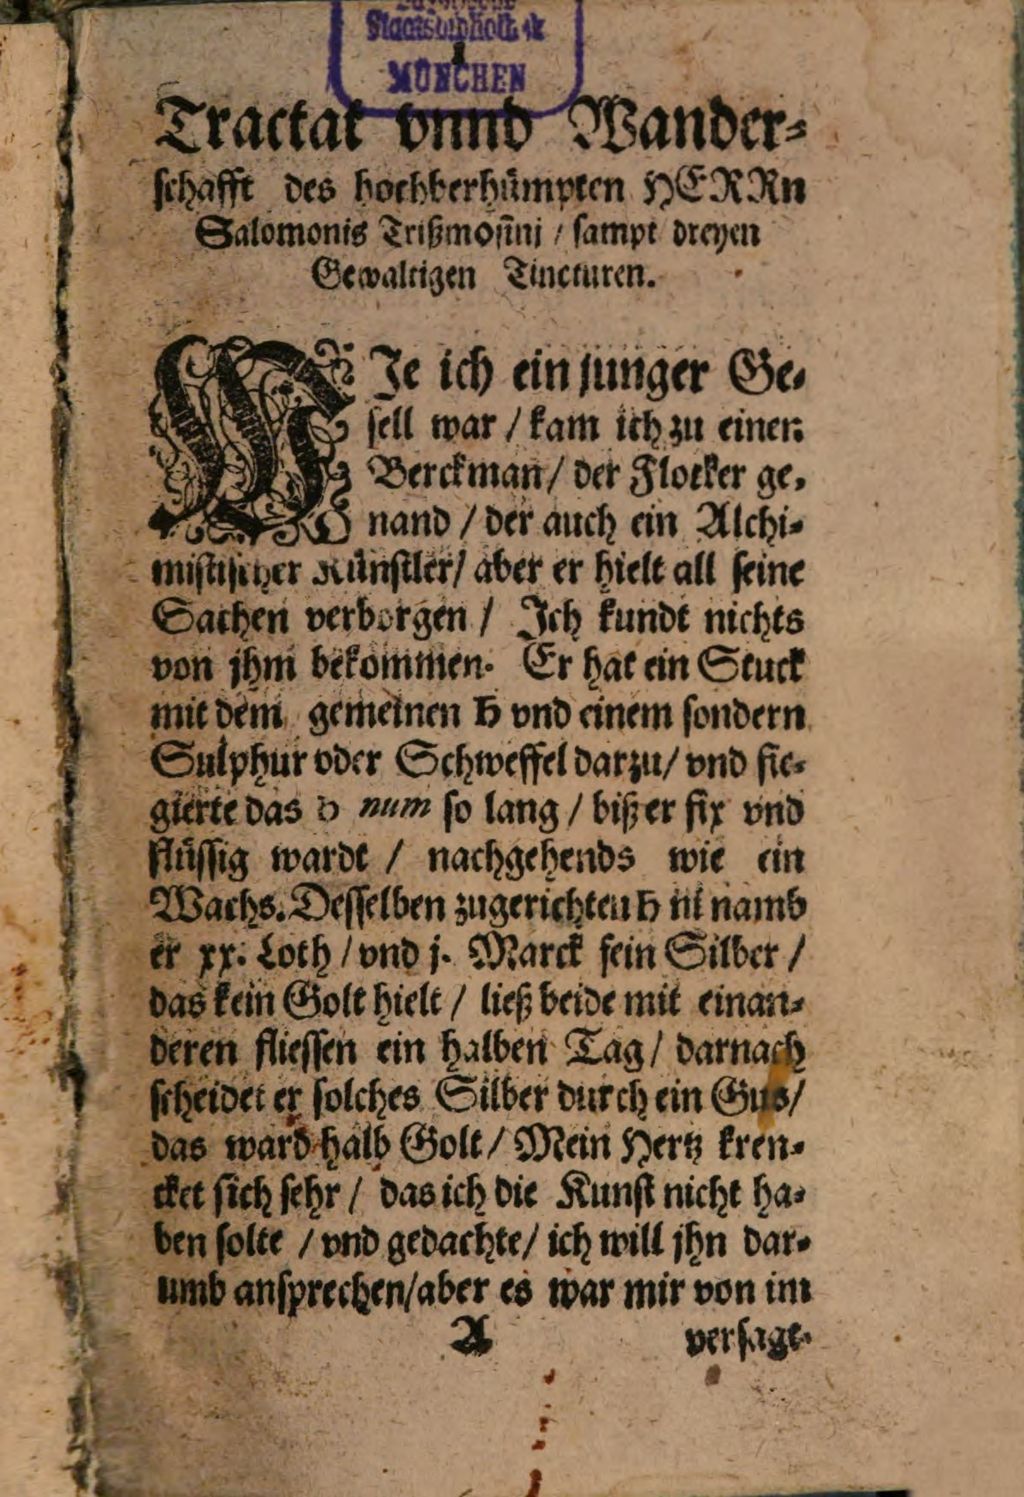 Staatsbibliothek
MÜNCHEN
Tractat vnnd Wander-
schafft des hochberhümpten HERRn
Salomonis Trißmosini / sampt dreyen
Gewaltigen Tincturen.
WIe ich ein junger Ge-
sell war / kam ich zu einen
Berckman / der Flocker ge-
nand / der auch ein Alchi-
mistischer Künstler / aber er hielt all seine
Sachen verborgen / Ich kundt nichts
von jhm bekommen. Er hat ein Stuck
mit dem gemeinen ♄ vnd einem sondern
Sulphur oder Schweffel darzu / vnd fie-
gierte das ♄ num so lang / biß er fix vnd
flüssig wardt / nachgehends wie ein
Wachs. Desselben zugerichten ♄ ni namb
er xx. Loth / vnd j. Marck fein Silber /
das kein Golt hielt / ließ beide mit einan-
deren fliessen ein halben Tag / darnach
scheidet er solches Silber durch ein Gus /
das ward halb Golt / Mein Hertz kren-
cket sich sehr / das ich die Kunst nicht ha-
ben solte / vnd gedachte / ich will jhn dar-
umb ansprechen / aber es war mir von im
A versagt-